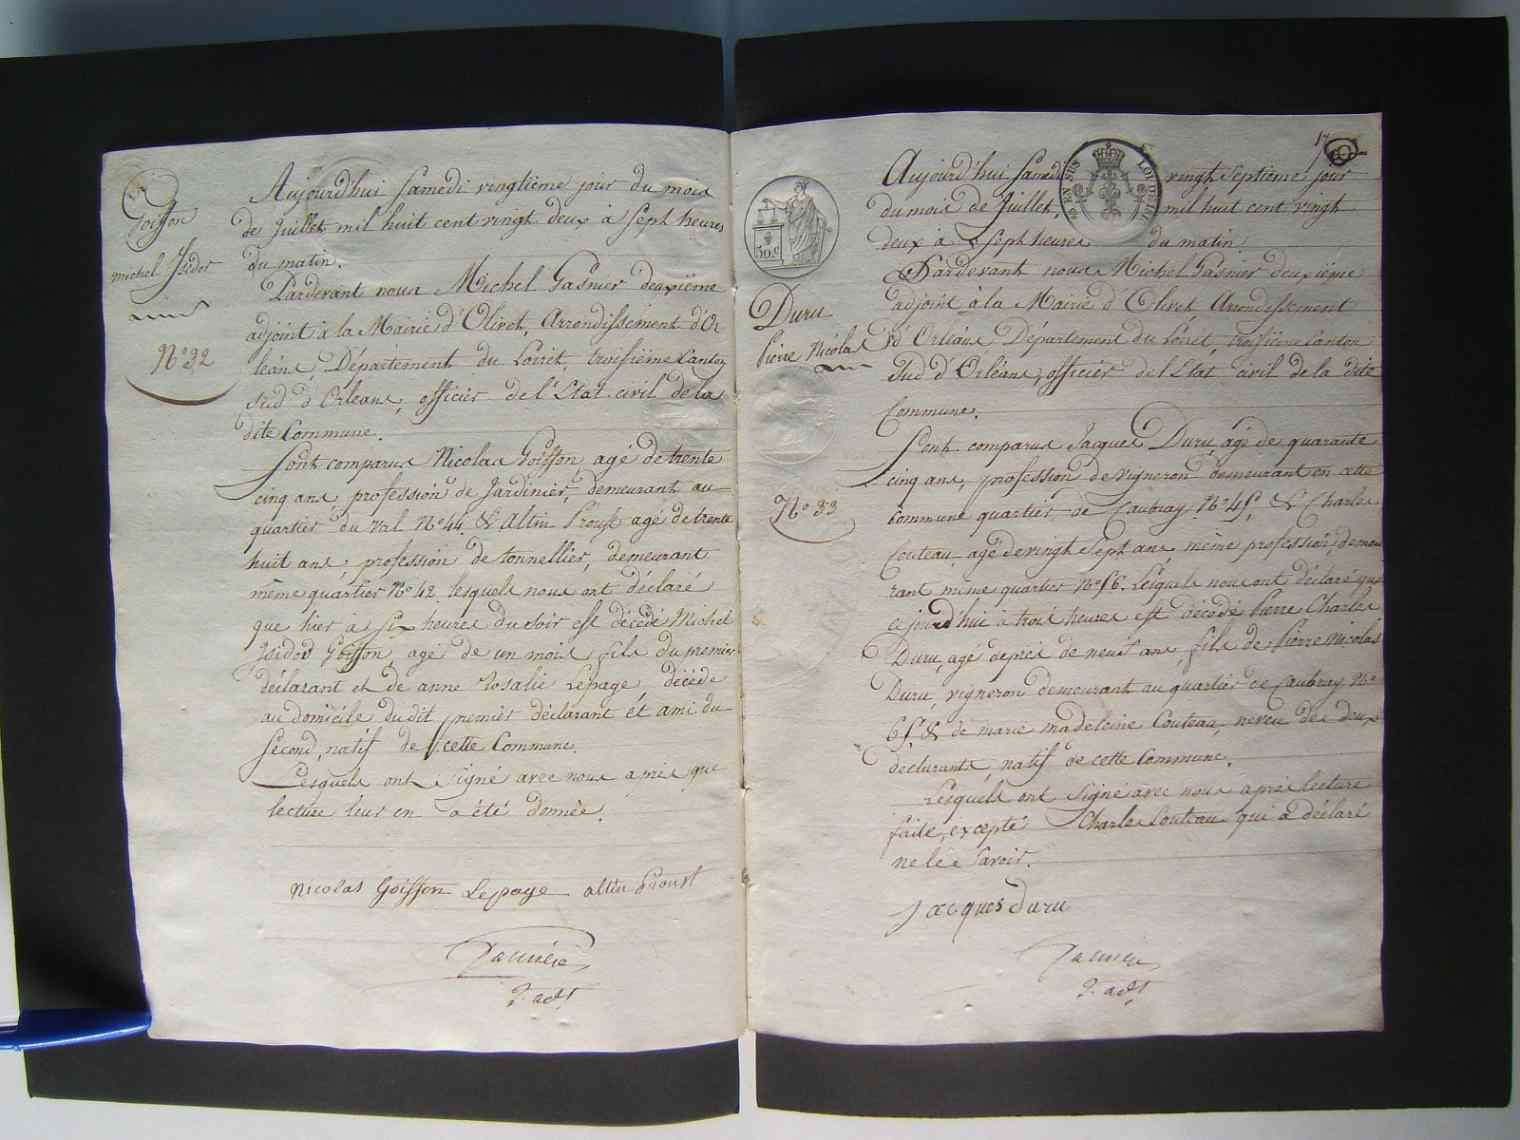 Goisson
michel Isidor
N.o 32
Aujourd'hui samedi vingtième jour du mois
de Juillet mil huit cent vingt deux à sept heures
du matin.
Pardevant nous Michel Gasnier deuxième
adjoint à la Mairie d'Olivet, Arrondissement d'Or
léans, Département du Loiret, troisième Canton
Sud d'Orléans, officier de l'Etat civil de la
dite Commune.
Sont comparus Nicolas Goisson agé de trente
cinq ans, profession de Jardinier, demeurant au
quartier du Val N.o 44 & Altin Proust agé de trente
huit ans, profession de tonnellier, demeurant
même quartier N.o 42 lesquels nous ont déclaré
que hier à six heures du soir est décédé Michel
Isidor Goisson, agé de un mois fils du premier
déclarant et de anne rosalie Lepage décédé
au domicile du dit premier déclarant et ami du
second, natif de cette Commune.
Lesquels ont signé avec nous après que
lecture leur en a été donnée.
Nicolas Goisson Lepage altin Proust
Gasnier
2.e adj.t
17
30.c
EN SUS
Duru
Pierre Nicolas
N.o 33
Aujourd'hui Samedi vingt septième jour
du mois de Juillet, mil huit cent vingt
deux à sept heures du matin
Pardevant nous Michel Gasnier deuxième
adjoint à la Mairie d'Olivet, Arrondissement
d'Orléans Département du Loiret, troisième Canton
Sud d'Orléans, officier de l'Etat civil de la dite
Commune.
Sont comparus Jacques Duru, agé de quarante
cinq ans, profession de vigneron demeurant en cette
commune quartier de Caubray N.o 45, & Charles
Couteau, agé de vingt Sept ans même profession, demeu
rant même quartier N.o 56. Lesquels nous ont déclaré que
ce jourd'hui à trois heures est décédé Pierre Charles
Duru, agé de près de neuf ans, fils de Pierre Nicolas
Duru, vigneron demeurant au quartier de Caubray N.o
65 & de marie madeleine Couteau, neveu des deux
déclarants, natif de cette Commune.
Lesquels ont signé avec nous après lecture
faite, excepté Charles Couteau qui a déclaré
ne le savoir.
Jacques Duru
Gasnier
2. adj.t